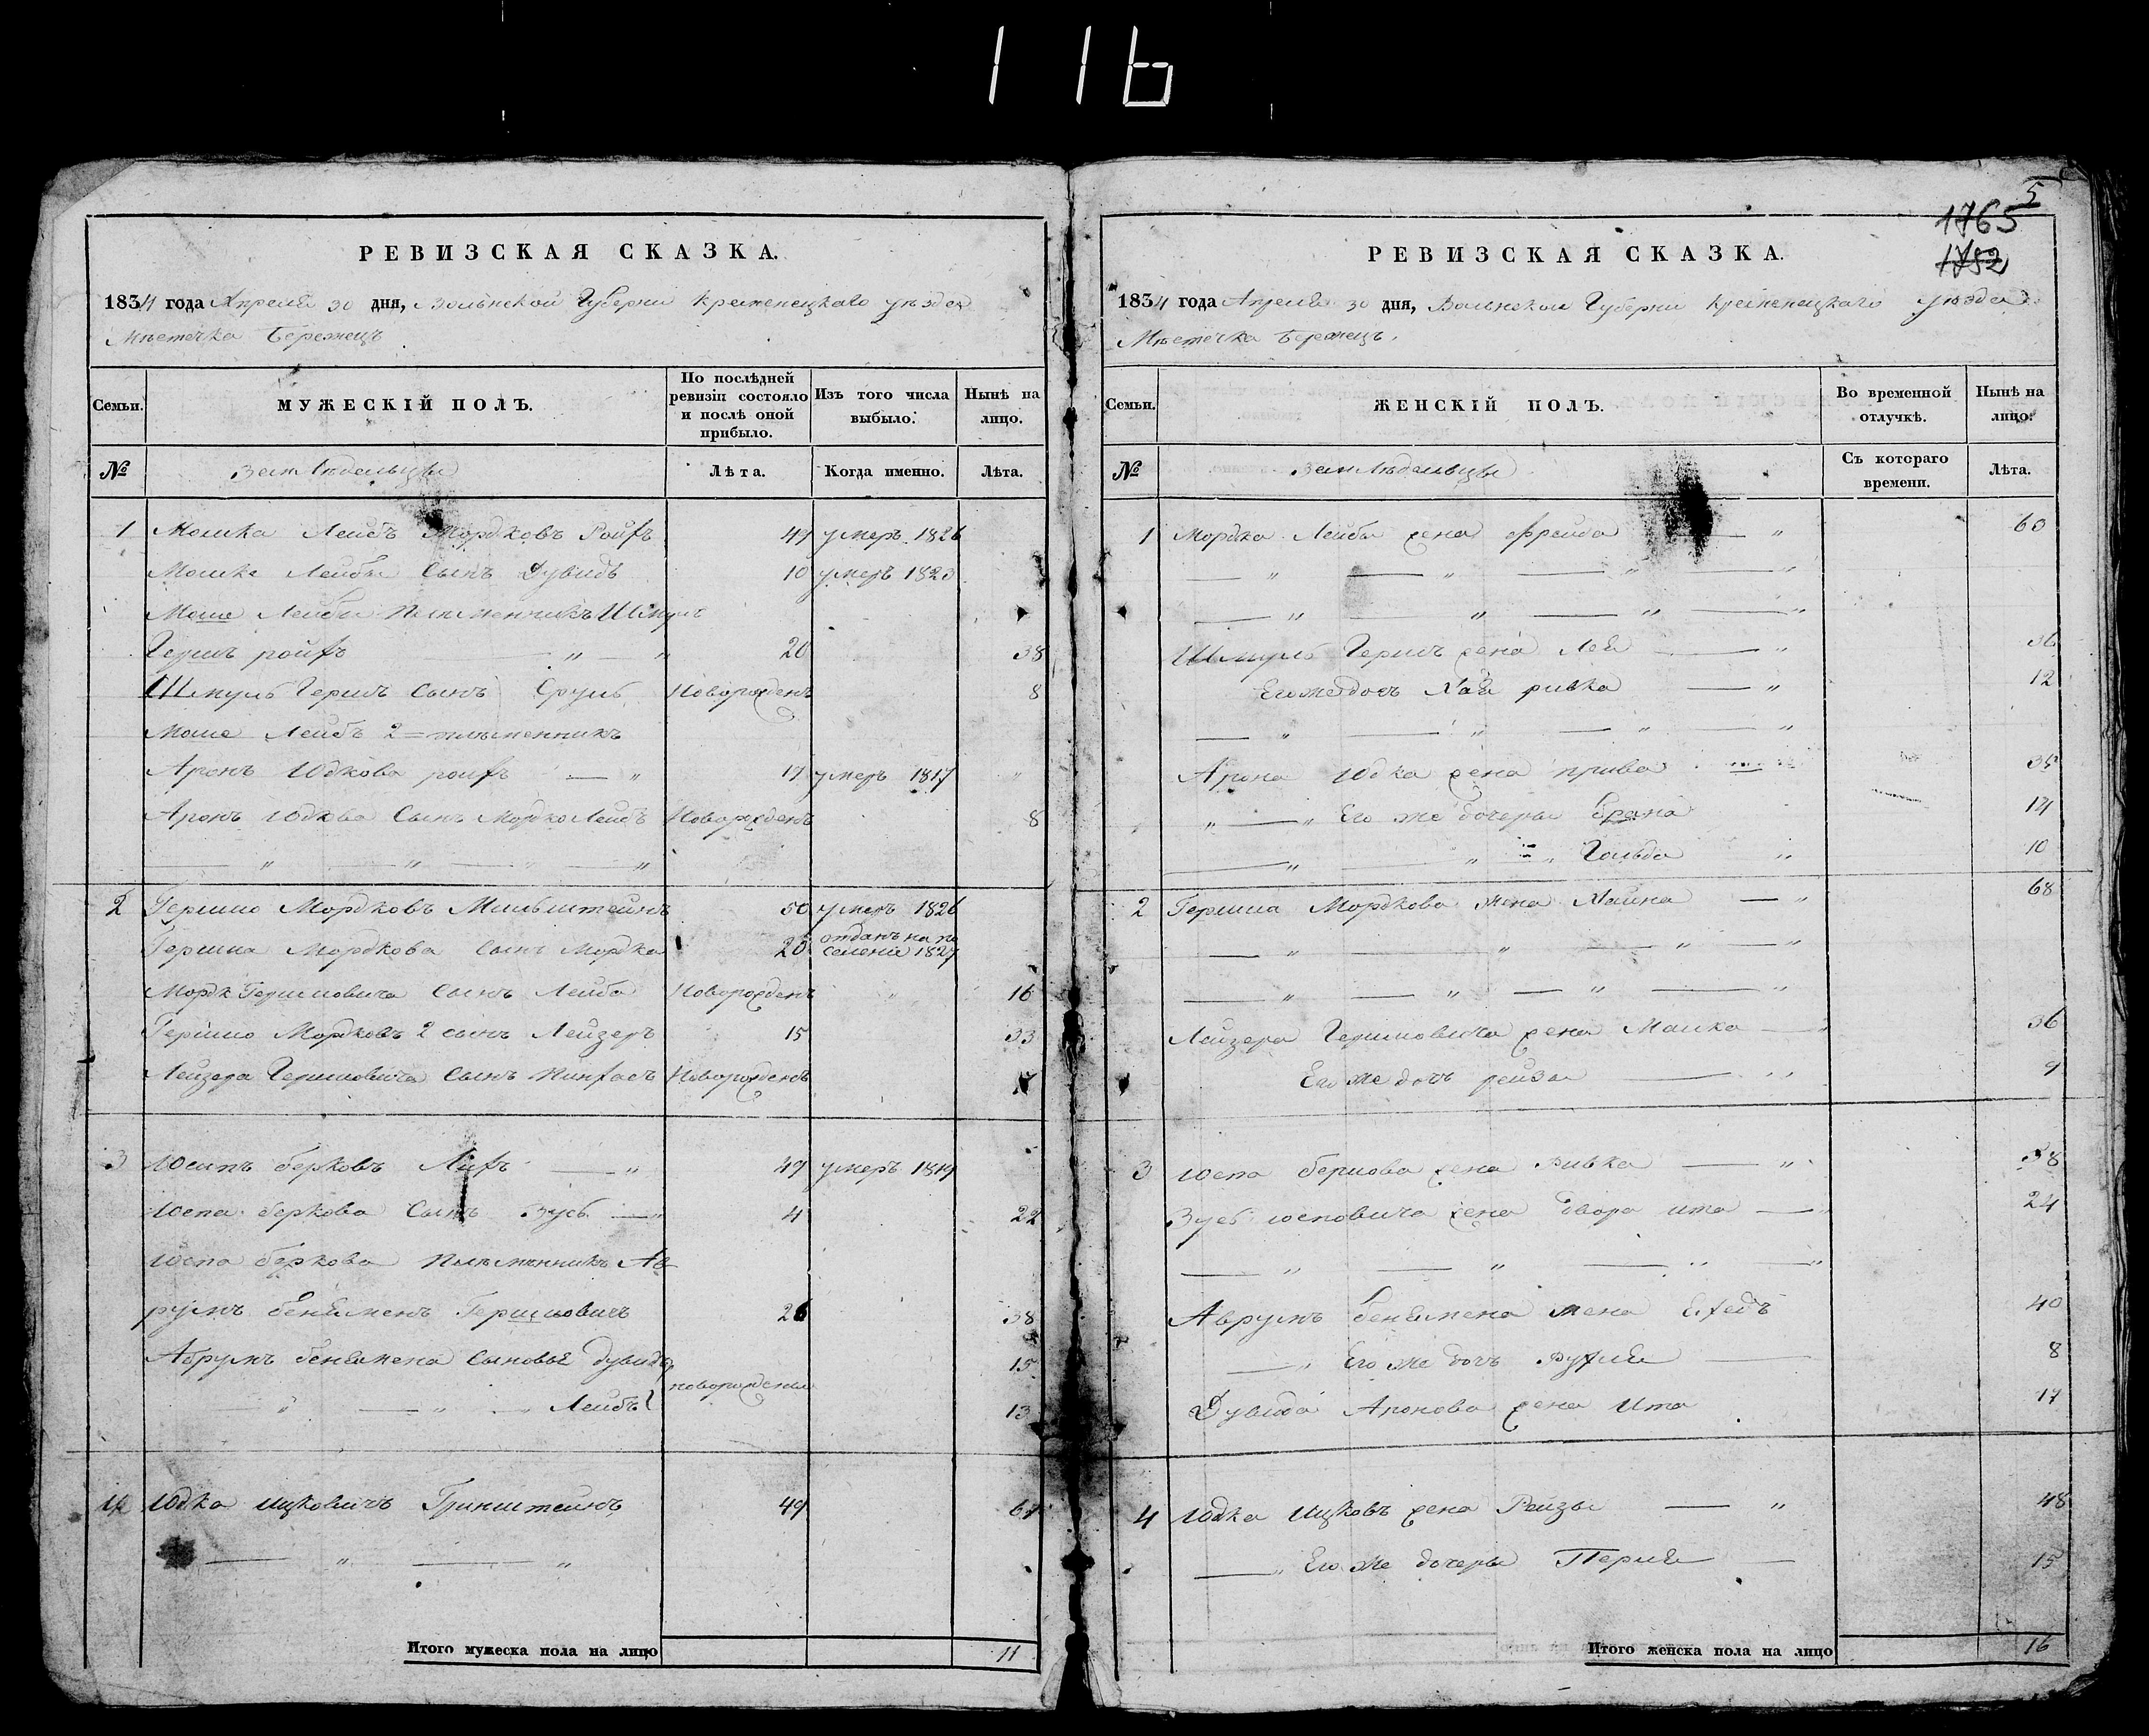 116
5
1765
1752
РЕВИЗСКАЯ СКАЗКА.
1834 года Апреля 30 дня, Волынской Губерни Кременецкаго уезда
Мъстечка Бережецъ
Семьи.
МУЖЕСКІЙ ПОЛЪ.
По послѣдней ревизіи состояло и послѣ оной прибыло.
Изъ того числа выбыло.
Нынѣ на лицо.
№
Земледѣльцы
Лѣта.
Когда именно.
Лѣта.
1 Мошка Лейбъ Мордковъ Ройхъ 49 умеръ 1826
Мошка Лейбы Сынъ Дувидъ 10 умеръ 1823
Моше Лейбы Племенникъ Шмуль
Гершъ ройхъ — " — " 20 38
Шмуль Гершъ Сынъ Сруль Новорожденъ 8
Моше Лейбъ 2 = племенникъ
Аронъ Юдкова ройхъ — " 17 умеръ 1817 "
Аронъ Юдкова Сынъ Мордко Лейбъ Новорожденъ 8
— " — " — " — "
2 Гершко Мордковъ Мильштейнъ 50 умеръ 1826
Гершка Мордкова Сынъ Мордка 20 отданъ на поселение 1827
Мордк Гершковича Сынъ Лейба Новорожденъ 16
Гершко Мордковъ 2 сынъ Лейзеръ 15 33
Лейзера Гершковича Сынъ Пинхасъ Новорожденъ
3 Юсипъ берковъ — " 49 умеръ 1819
Юспа беркова Сынъ Зусь — " 4 22
Юспа беркова Племенникъ Ав
румъ беніаменъ Гершковичъ 26 38
Абрумъ беніамена Сыновья дувидъ 15
новорождены
— " — " — Лейбъ 13
4 Юдка Ицковичъ Гринштейнъ 49 67
— " — "
Итого мужеска пола на лицо 11
РЕВИЗСКАЯ СКАЗКА.
1834 года Апреля 30 дня, Волынской Губерни Кременецкаго уезда
Мъстечка Бережецъ.
Семьи.
ЖЕНСКІЙ ПОЛЪ.
Во временной отлучкѣ.
Нынѣ на лицо.
№
Земледѣльцы
Съ котораго времени.
Лѣта.
1 Мордка Лейбы жена Фрейда — " 60
— " — " — " — "
— " " — " — "
Шмуль Гершъ жена Лея — " 36
Его же дочь Хая ривка — " 12
— " — " — " — "
Арона Юдка жена 35
" — " Его же дочеры Брана 14
— " — " " Гольда " 10
2 Гершка Мордкова жена Хайка — " 68
— " " — " — "
— " — " — " — "
Лейзера Гершковича жена Малка — " 36
Его же дочь рейза — " 9
3 Юспа беркова жена Ривка — " 38
Зусь юсповича жена Двора ита — " 24
— " — " — " — "
Аврумъ беніамена жена 40
— " Его же дочь Рухля — 8
Дувида Аронова жена Ита 17
4 Юдка Ицковъ жена Рейзы — " 48
— " Его же дочеры Перля — 15
Итого женска пола на лицо 16